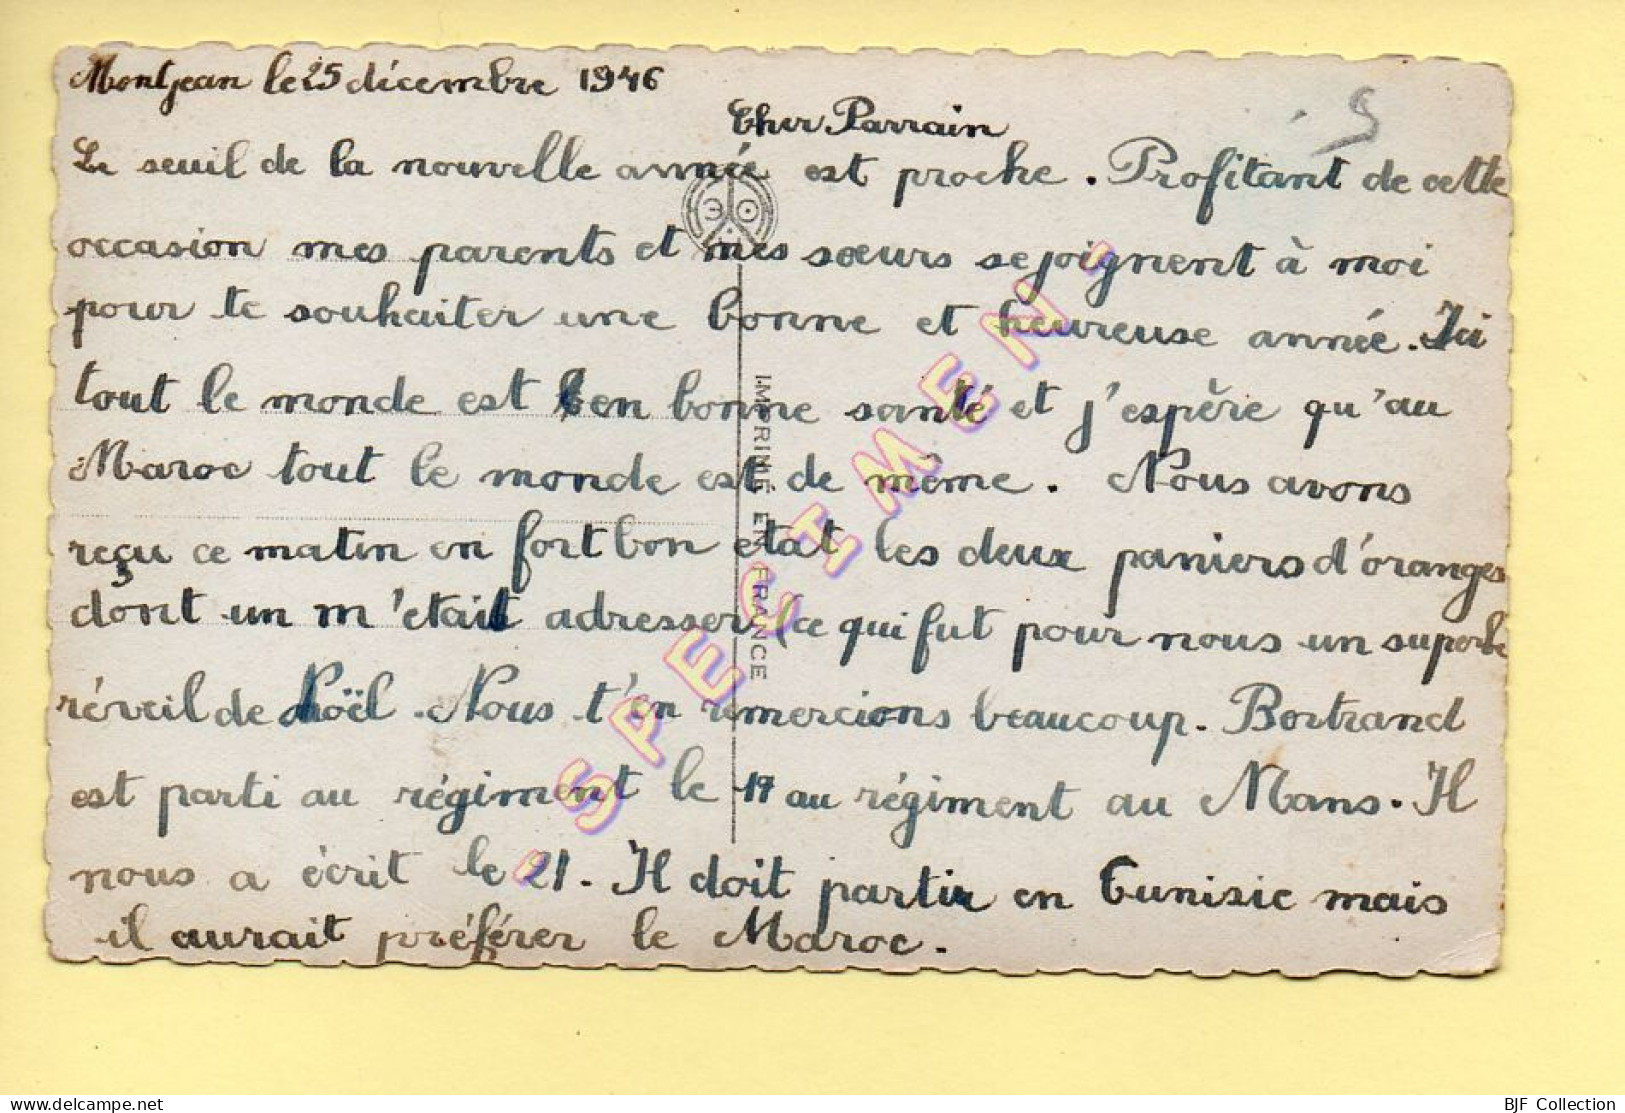 Montjean le 25 décembre 1946
Cher Parrain
Le seuil de la nouvelle année est proche. Profitant de cette
occasion mes parents et mes sœurs se joignent à moi
pour te souhaiter une bonne et heureuse année. Ici
tout le monde est en bonne santé et j'espère qu'au
Maroc tout le monde est de même. Nous avons
reçu ce matin en fort bon etat les deux paniers d'oranges
dont un m'etait adresser (ce qui fut pour nous un superbe
réveil de Noël. Nous t'en remercions beaucoup. Bertrand
est parti au régiment le 17 au régiment au Mans. Il
nous a écrit le 21. Il doit partir en Tunisie mais
il aurait préférer le Maroc.
IMPRIMÉ EN FRANCE
"SPECIMEN"
BJF Collection
www.delcampe.net